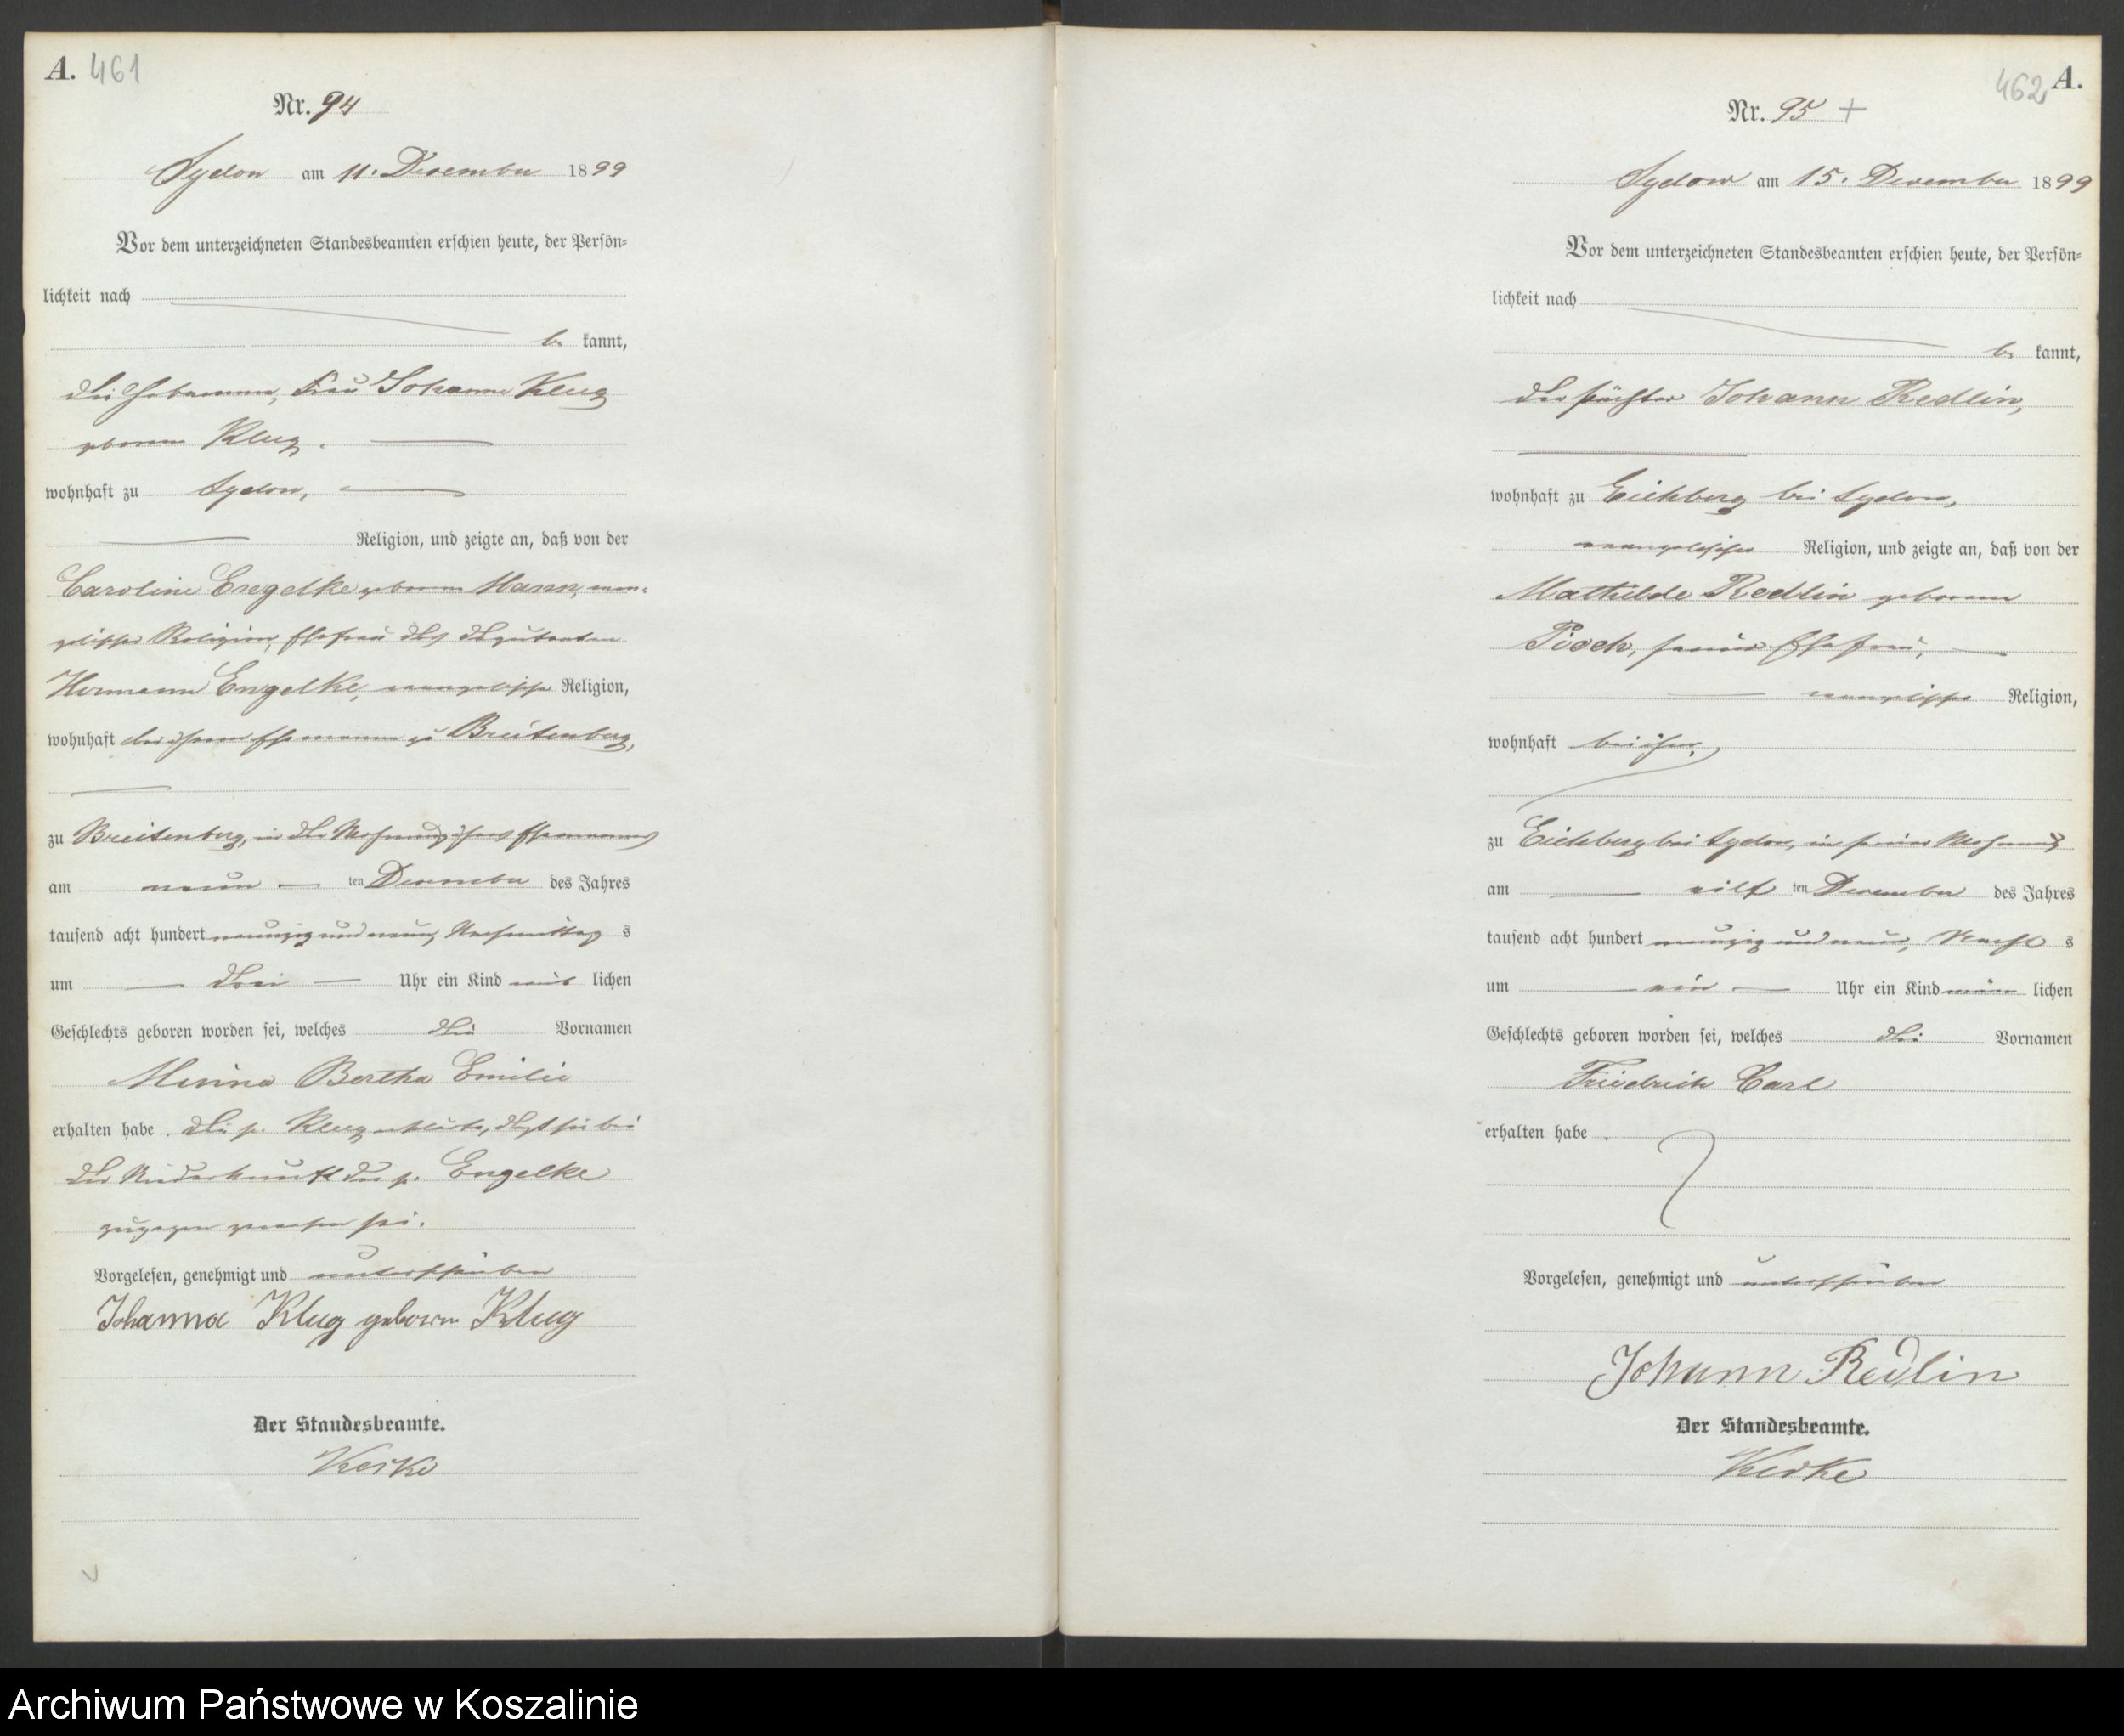 A. 461
Nr. 94
Sydow am 11. Dezember 1899
Vor dem unterzeichneten Standesbeamten erschien heute, der Persön=
lichkeit nach
be kannt,
die Hebamme, Frau Johanne Klug
geborene Klug.
wohnhaft zu Sydow,
Religion, und zeigte an, daß von der
Caroline Engelke geborene Mann, evan-
gelischer Religion, Ehefrau des
Hermann Engelke, evangelischer Religion,
wohnhaft bei ihrem Ehemanne zu Breitenberg,
zu Breitenberg, in der Wohnung ihres Ehemannes
am neun ten Dezember des Jahres
tausend acht hundert neunzig und neun, Nachmittag s
um drei Uhr ein Kind weib lichen
Geschlechts geboren worden sei, welches die Vornamen
Minna Bertha Emilie
erhalten habe. Die p. Klug erklärte, daß sie bei
der Niederkunft der p. Engelke
zugegen gewesen sei.
Vorgelesen, genehmigt und unterschrieben
Johanna Klug geboren Klug
Der Standesbeamte.
Keske
462 A.
Nr. 95 +
Sydow am 15. Dezember 1899
Vor dem unterzeichneten Standesbeamten erschien heute, der Persön=
lichkeit nach
be kannt,
der Pächter Johann Redlin,
wohnhaft zu Eichberg bei Sydow,
evangelischer Religion, und zeigte an, daß von der
Mathilde Redlin geborene
Pioch, seiner Ehefrau,
evangelischer Religion,
wohnhaft bei ihm,
zu Eichberg bei Sydow, in seiner Wohnung
am eilf ten Dezember des Jahres
tausend acht hundert neunzig und neun, Nacht s
um ein Uhr ein Kind männ lichen
Geschlechts geboren worden sei, welches die Vornamen
Friedrich Carl
erhalten habe.
Vorgelesen, genehmigt und unterschrieben
Johann Redlin
Der Standesbeamte.
Keske
Archiwum Państwowe w Koszalinie